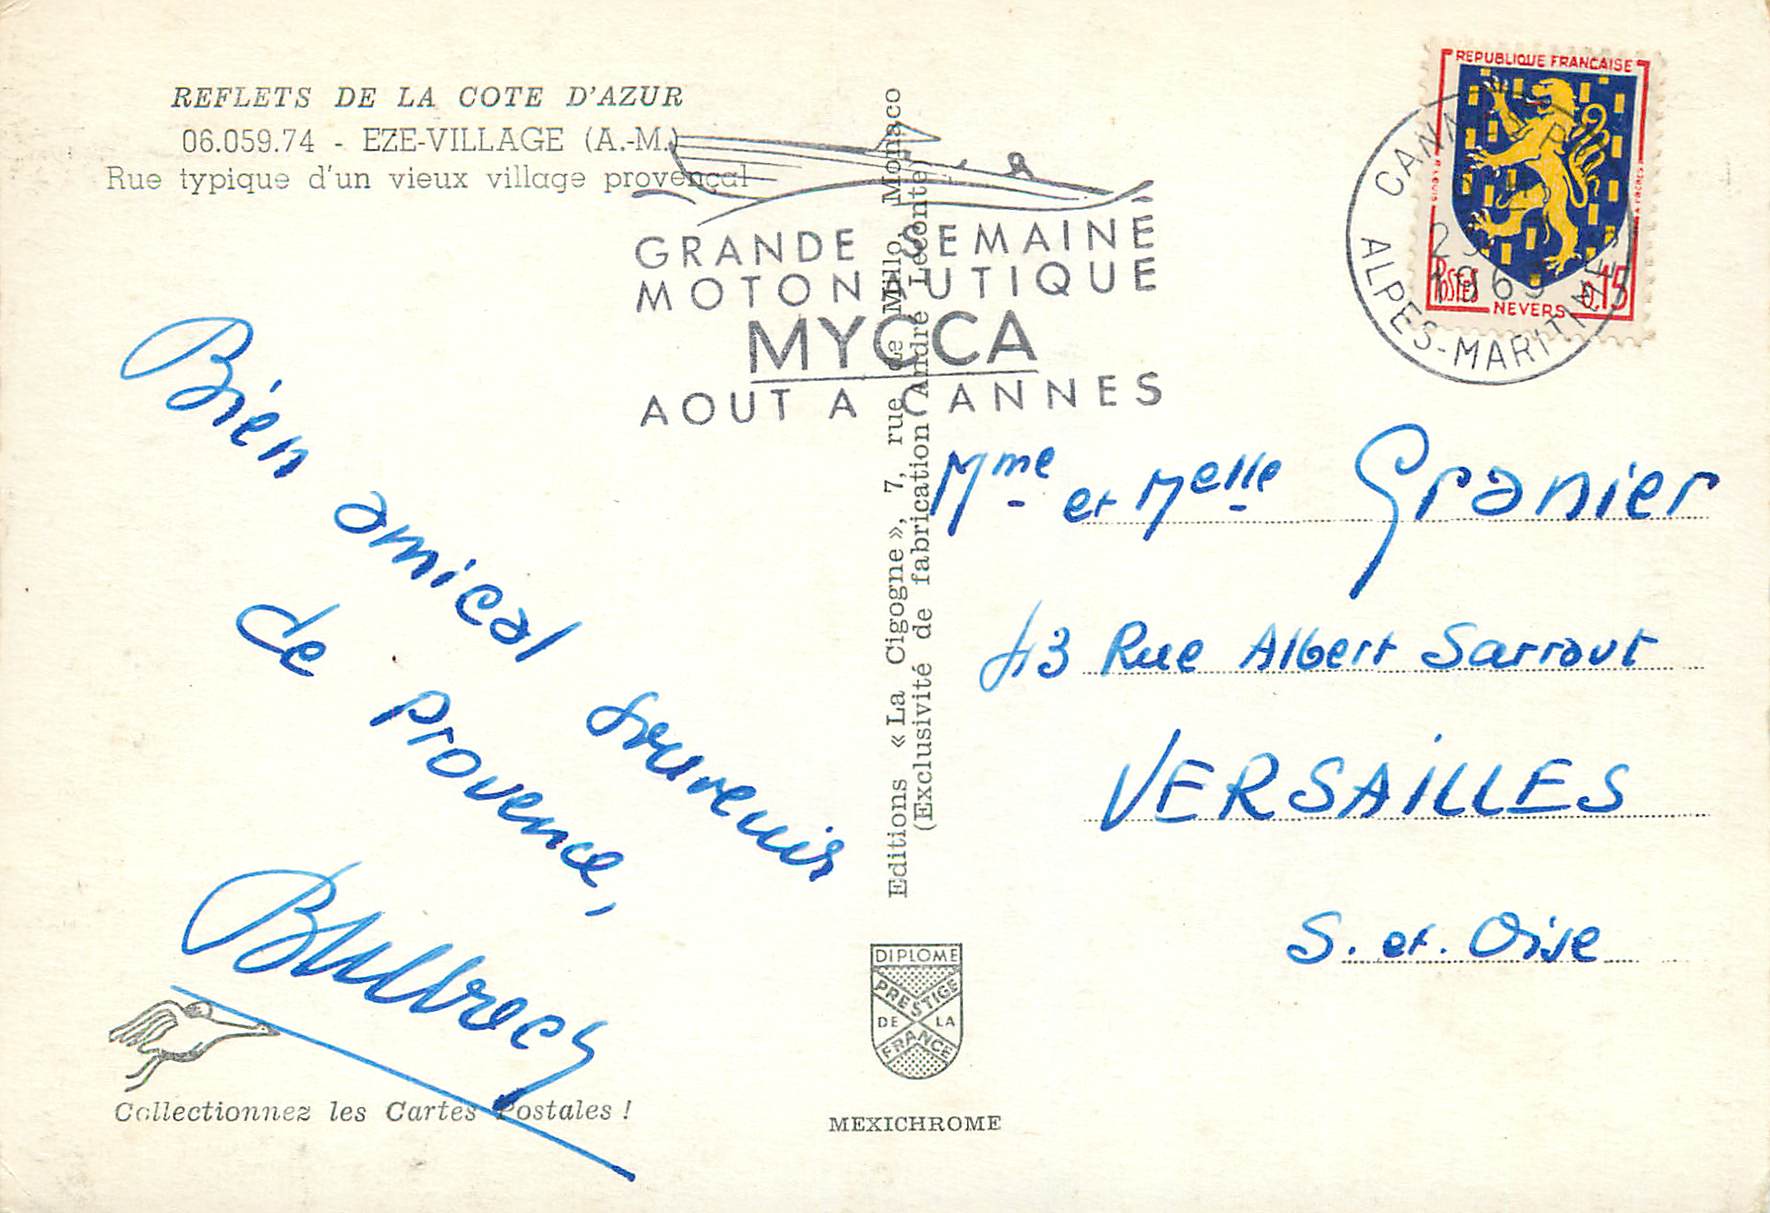 REFLETS DE LA COTE D'AZUR
06.059.74 - EZE-VILLAGE (A.-M.)
Rue typique d'un vieux village provençal
GRANDE SEMAINE
MOTONAUTIQUE
MYCCA
AOUT A CANNES
REPUBLIQUE FRANÇAISE
POSTES
0,15
NEVERS
ALPES-MARITIMES
Bien amical souvenir
de Provence,
Editions « La Cigogne », 7, rue de Millo, Monaco
(Exclusivité de fabrication André Leconte)
Mme et Melle Granier
43 Rue Albert Sarraut
VERSAILLES
S. et. Oise
DIPLOME
PRESTIGE
DE LA
FRANCE
Collectionnez les Cartes Postales !
MEXICHROME